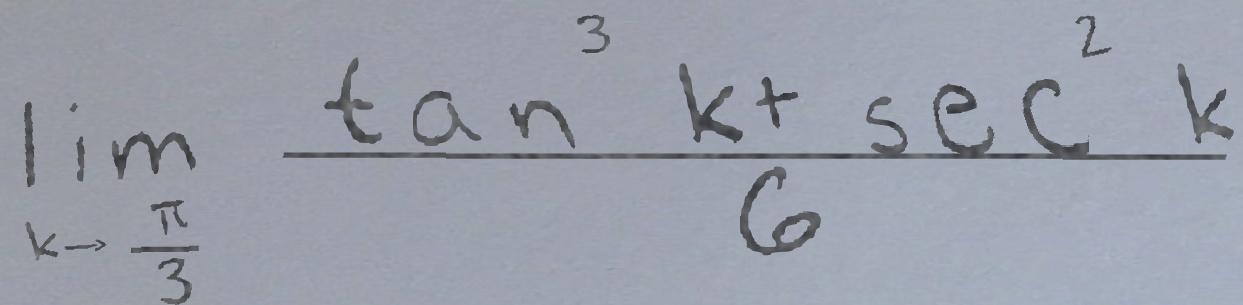 lim_{k→\frac{π}{3}} \frac{tan^3 k + sec^2 k}{6}